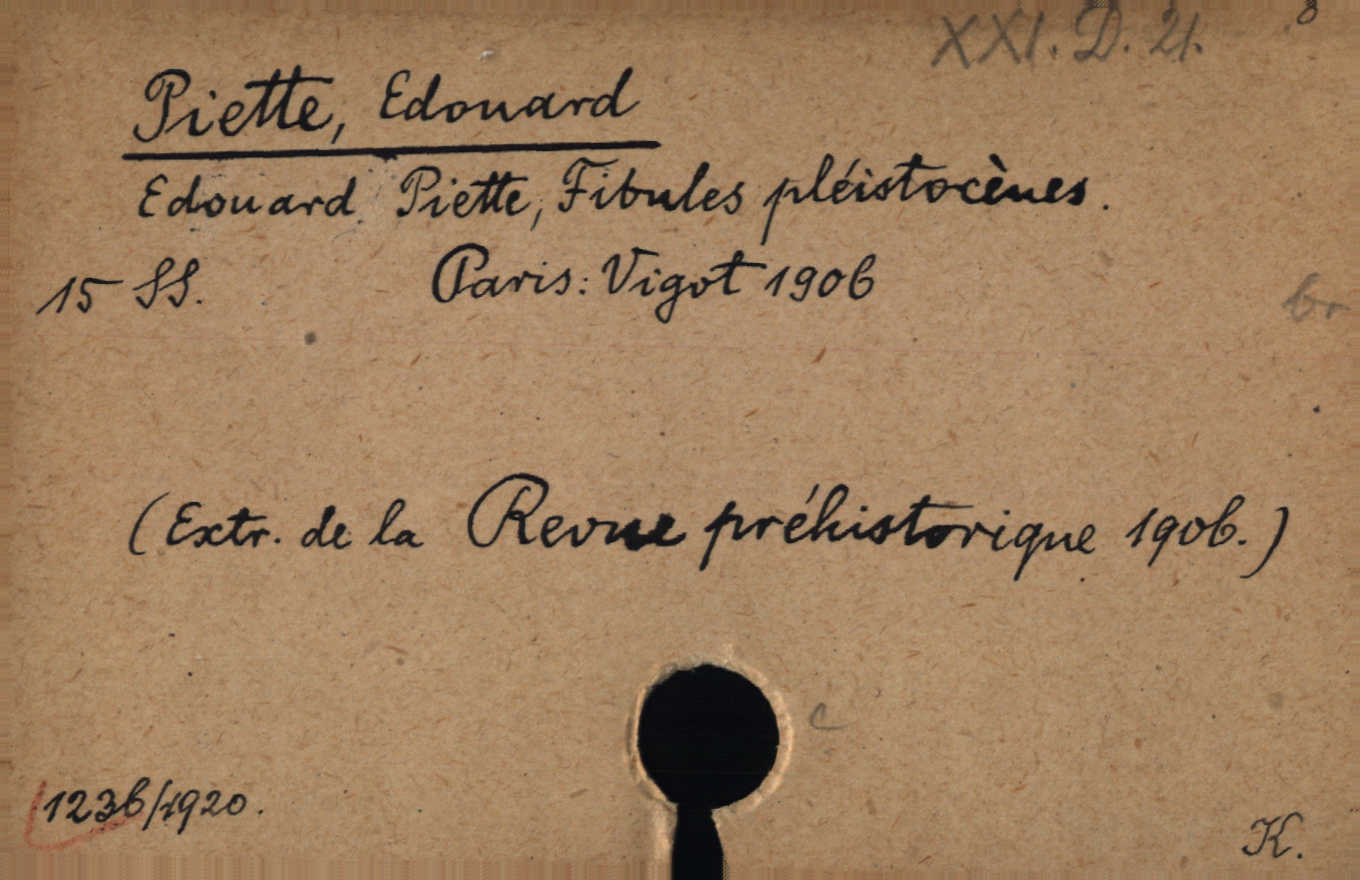 XXI. D. 21. 8
Piette, Edouard
Edouard Piette, Fibules pléistocènes.
15 SS. Paris: Vigot 1906
br
(Extr. de la Revue préhistorique 1906.)
c
1236/1920.
K.